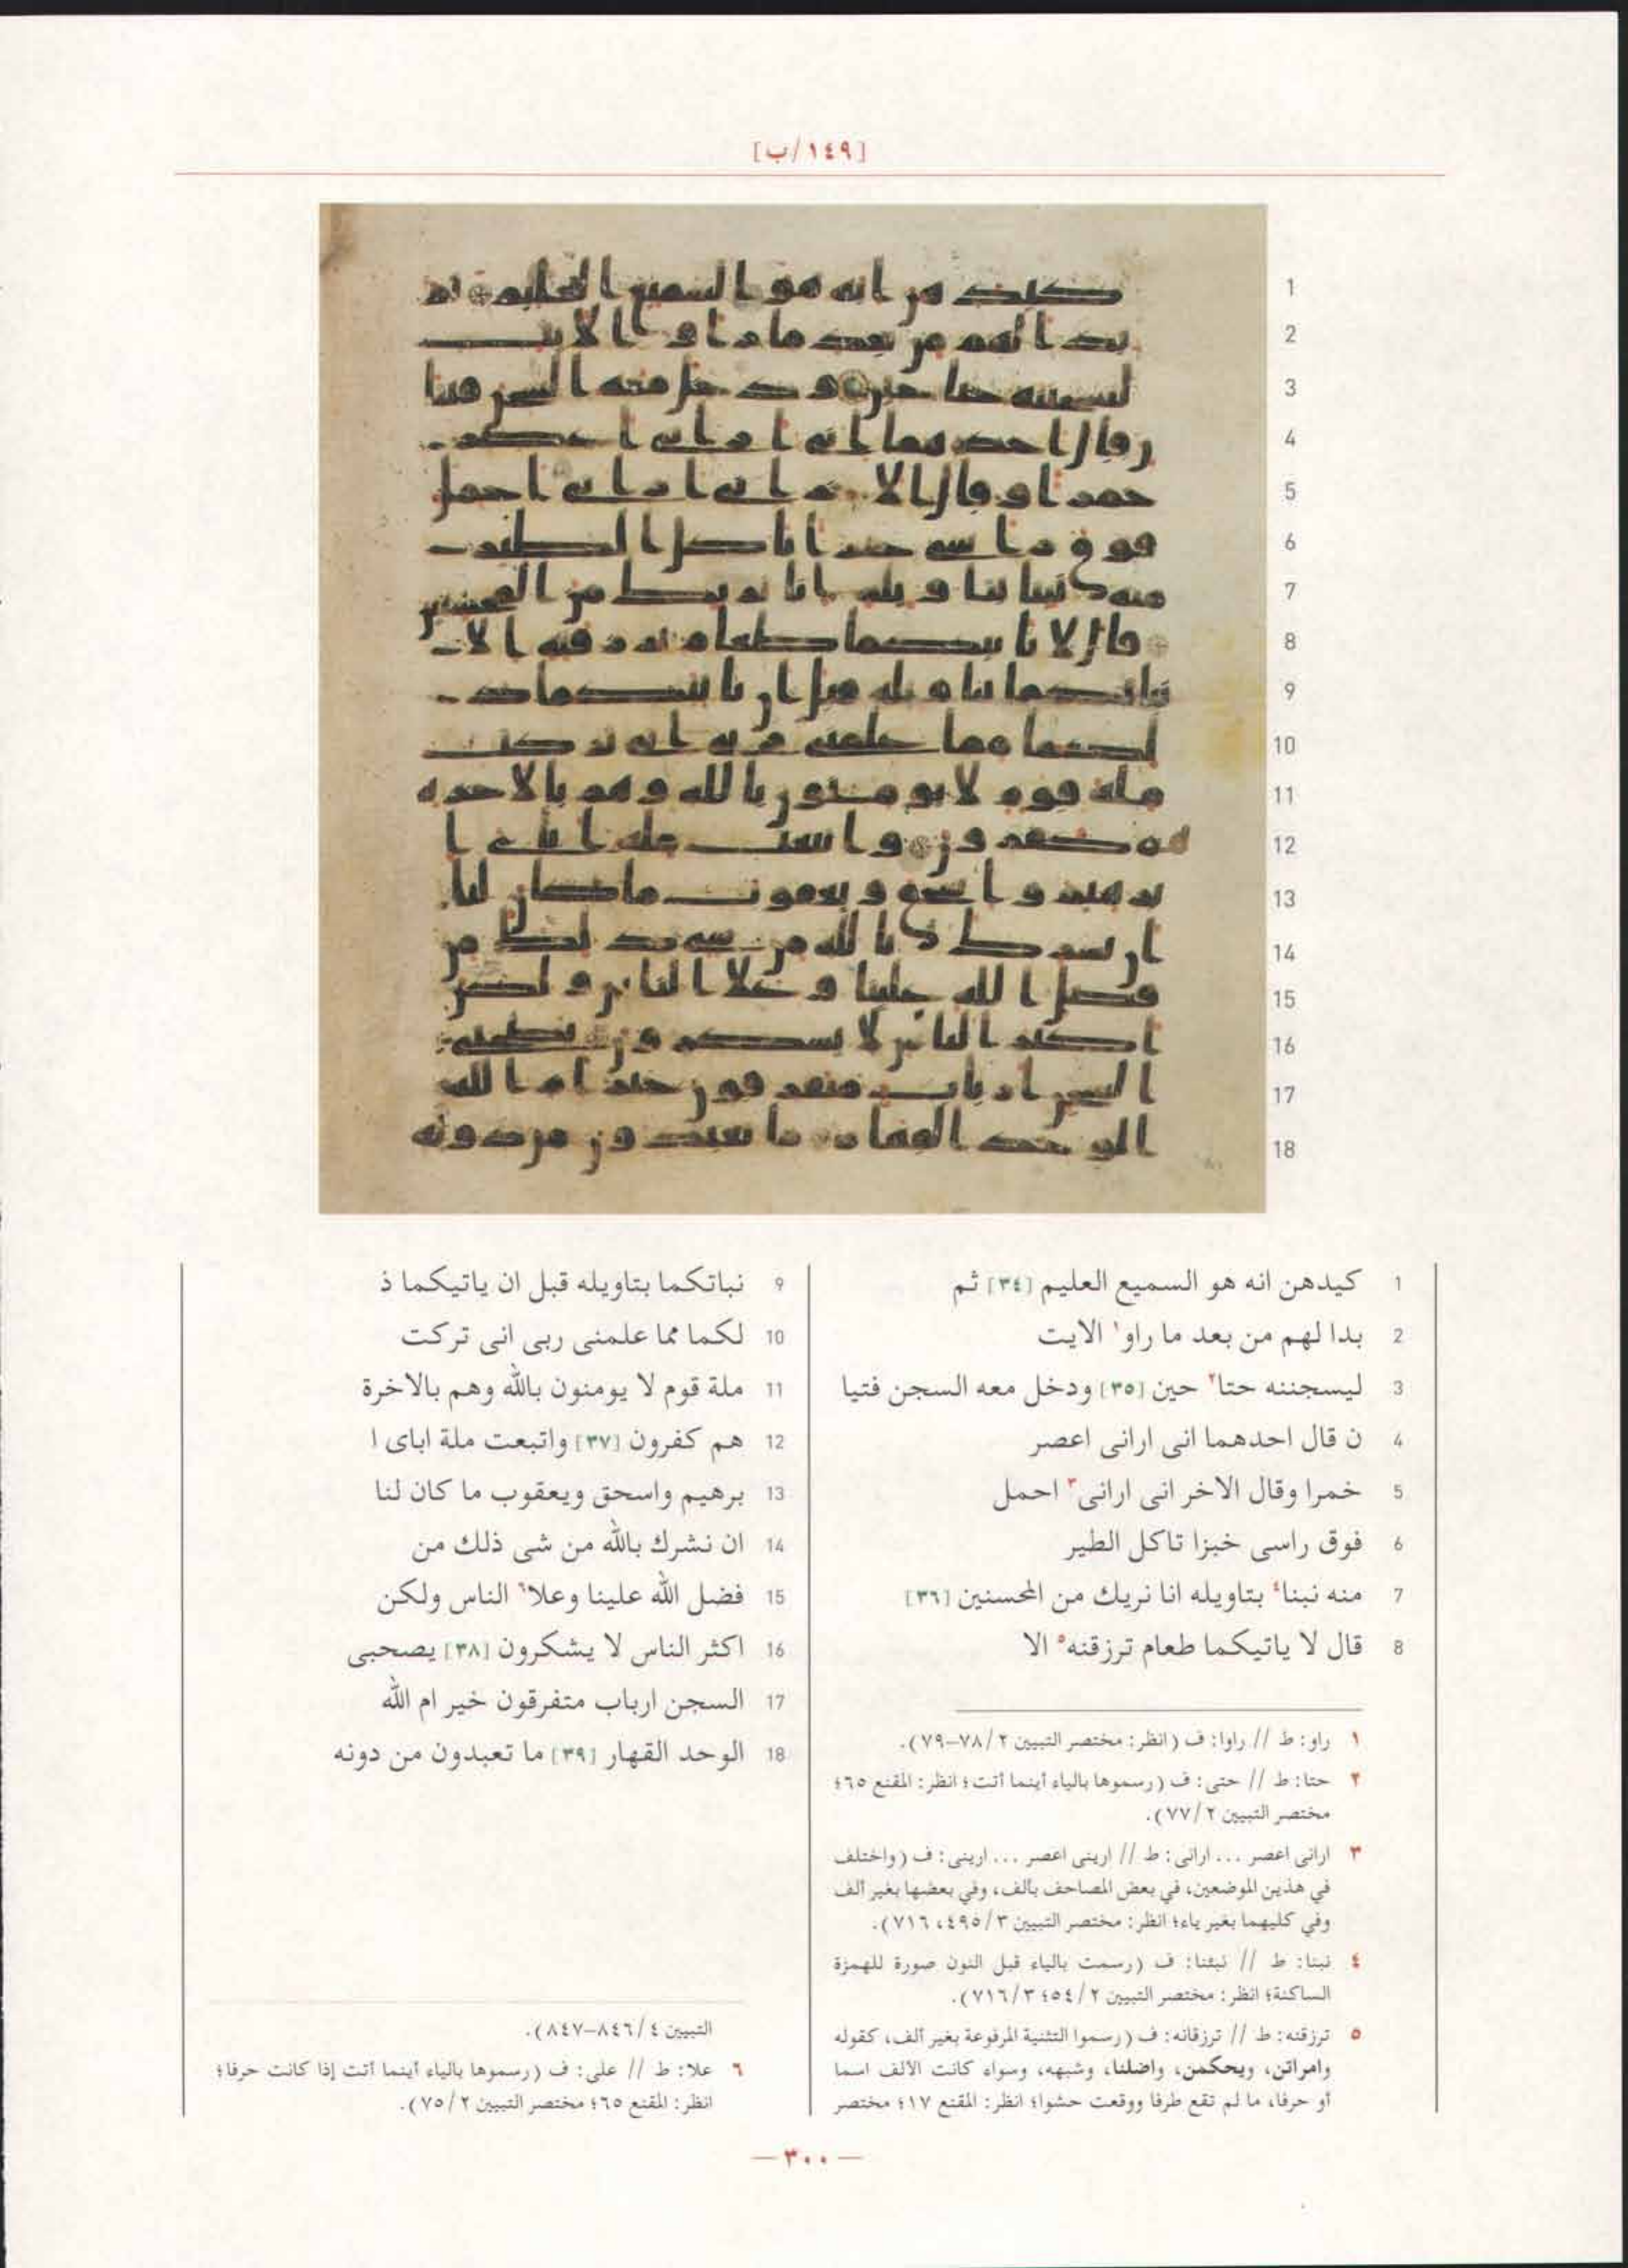 [١٤٩/ب]
1 كيدهن انه هو السميع العليم [٣٤] ثم
2 بدا لهم من بعد ما راو١ الايت
3 ليسجننه حتا٢ حين [٣٥] ودخل معه السجن فتيا
4 ن قال احدهما انى ارانى اعصر
5 خمرا وقال الاخر انى ارانى٣ احمل
6 فوق راسى خبزا تاكل الطير
7 منه نبنا٤ بتاويله انا نريك من المحسنين [٣٦]
8 قال لا ياتيكما طعام ترزقنه٥ الا
9 نباتكما بتاويله قبل ان ياتيكما ذ
10 لكما مما علمنى ربى انى تركت
11 ملة قوم لا يومنون بالله وهم بالاخرة
12 هم كفرون [٣٧] واتبعت ملة اباى ا
13 برهيم واسحق ويعقوب ما كان لنا
14 ان نشرك بالله من شى ذلك من
15 فضل الله علينا وعلا٦ الناس ولكن
16 اكثر الناس لا يشكرون [٣٨] يصحبى
17 السجن ارباب متفرقون خير ام الله
18 الوحد القهار [٣٩] ما تعبدون من دونه
١ راو: ط // راوا: ف (انظر: مختصر التبيين ٢/ ٧٨–٧٩).
٢ حتا: ط // حتى: ف (رسموها بالياء أينما أتت؛ انظر: المقنع ٦٥؛
مختصر التبيين ٢/ ٧٧).
٣ ارانى اعصر ... ارانى: ط // ارينى اعصر ... ارينى: ف (واختلف
في هذين الموضعين، في بعض المصاحف بألف، وفي بعضها بغير ألف
وفي كليهما بغير ياء؛ انظر: مختصر التبيين ٣/ ٤٩٥، ٧١٦).
٤ نبنا: ط // نبئنا: ف (رسمت بالياء قبل النون صورة للهمزة
الساكنة؛ انظر: مختصر التبيين ٢/ ٥٤؛ ٣/ ٧١٦).
٥ ترزقنه: ط // ترزقانه: ف (رسموا التثنية المرفوعة بغير ألف، كقوله
وامراتن، ويحكمن، واضلنا، وشبهه، وسواء كانت الألف اسما
أو حرفا، ما لم تقع طرفا ووقعت حشوا؛ انظر: المقنع ١٧؛ مختصر
التبيين ٤/ ٨٤٦–٨٤٧).
٦ علا: ط // على: ف (رسموها بالياء أينما أتت إذا كانت حرفا؛
انظر: المقنع ٦٥؛ مختصر التبيين ٢/ ٧٥).
— ٣٠٠ —